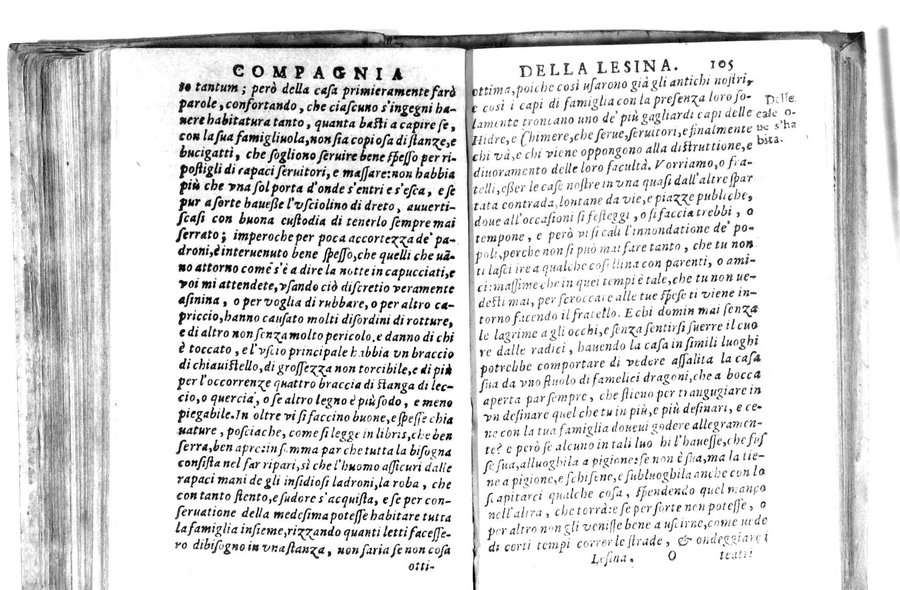 COMPAGNIA
so tantum; però della casa primieramente farò
parole, confortando, che ciascuno s'ingegni ha-
uere habitatura tanto, quanta basti a capire se,
con la sua famigliuola, non sia copiosa di stanze, e
bucigatti, che sogliono seruire bene spesso per ri-
postigli di rapaci seruitori, e massare: non habbia
più che vna sol porta d'onde s'entri e s'esca, e se
pur a sorte hauesse l'vsciolino di dreto, auuerti-
scasi con buona custodia di tenerlo sempre mai
serrato; imperoche per poca accortezza de' pa-
droni, è interuenuto bene spesso, che quelli che uā-
no attorno come s'è a dire la notte in capucciati, e
voi mi attendete, vsando ciò discretio veramente
asinina, o per voglia di rubbare, o per altro ca-
priccio, hanno causato molti disordini di rotture,
e di altro non senza molto pericolo, e danno di chi
è toccato, e l'vscio principale habbia vn braccio
di chiauistello, di grossezza non torcibile, e di più
per l'occorrenze quattro braccia di stanga di lec-
cio, o quercia, o se altro legno è più sodo, e meno
piegabile. In oltre vi si faccino buone, e spesse chia
uature, posciache, come si legge in libris, che ben
serra, ben apre: in somma par che tutta la bisogna
consista nel far ripari, sì che l'huomo assicuri dalle
rapaci mani de gli insidiosi ladroni, la roba, che
con tanto stento, e sudore s'acquista, e se per con-
seruatione della medesima potesse habitare tutta
la famiglia insieme, rizzando quanti letti facesse-
ro dibisogno in vna stanza, non saria se non cosa
otti-
DELLA LESINA. 105
ottima, poiche così usarono già gli antichi nostri,
e così i capi di famiglia con la presenza loro so-
lamente troncano uno de' più gagliardi capi delle
Hidre, e Chimere, che serue, seruitori, e finalmente
chi và, e chi viene oppongono alla distruttione, e
diuoramento delle loro facultà. Vorriamo, o fra-
telli, esser le case nostre in vna quasi dall'altre spar
tata contrada, lontane da vie, e piazze publiche,
doue all'occasioni si festeggi, o si faccia trebbi, o
tempone, e però vi si cali l'innondatione de' po-
poli, perche non si può mai fare tanto, che tu non
ti lasci ire a qualche cosellina con parenti, o ami-
ci: massime che in quei tempi è tale, che tu non ue-
desti mai, per scroccare alle tue spese ti viene in-
torno facendo il fratello. E chi domin mai senza
le lagrime a gli occhi, e senza sentirsi suerre il cuo
re dalle radici, hauendo la casa in simili luoghi
potrebbe comportare di vedere assalita la casa
sua da vno stuolo di famelici dragoni, che a bocca
aperta par sempre, che stieno per trangugiare in
vn desinare quel che tu in più, e più desinari, e ce-
ne con la tua famiglia doueui godere allegramen-
te? e però se alcuno in tali luo hi l'hauesse, che fus
se sua, alluoghila a pigione: se non è sua, ma la tie-
ne a pigione, e schisene, e subluoghila anche con lo
scapitarci qualche cosa, spendendo quel manco
nell'altra, che torrà: e se per sorte non potesse, o
per altro non gli venisse bene a uscirne, come uede
di certi tempi correr le strade, & ondeggiare i
Lesina. O teatri
Delle
case o-
ue s'ha
bita.